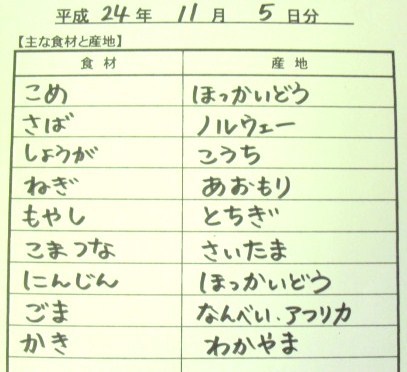 平成 24 年 11 月 5 日分
【主な食材と産地】
食材 産地
こめ ほっかいどう
さば ノルウェー
しょうが こうち
ねぎ あおもり
もやし とちぎ
こまつな さいたま
にんじん ほっかいどう
ごま なんべい.アフリカ
かき わかやま